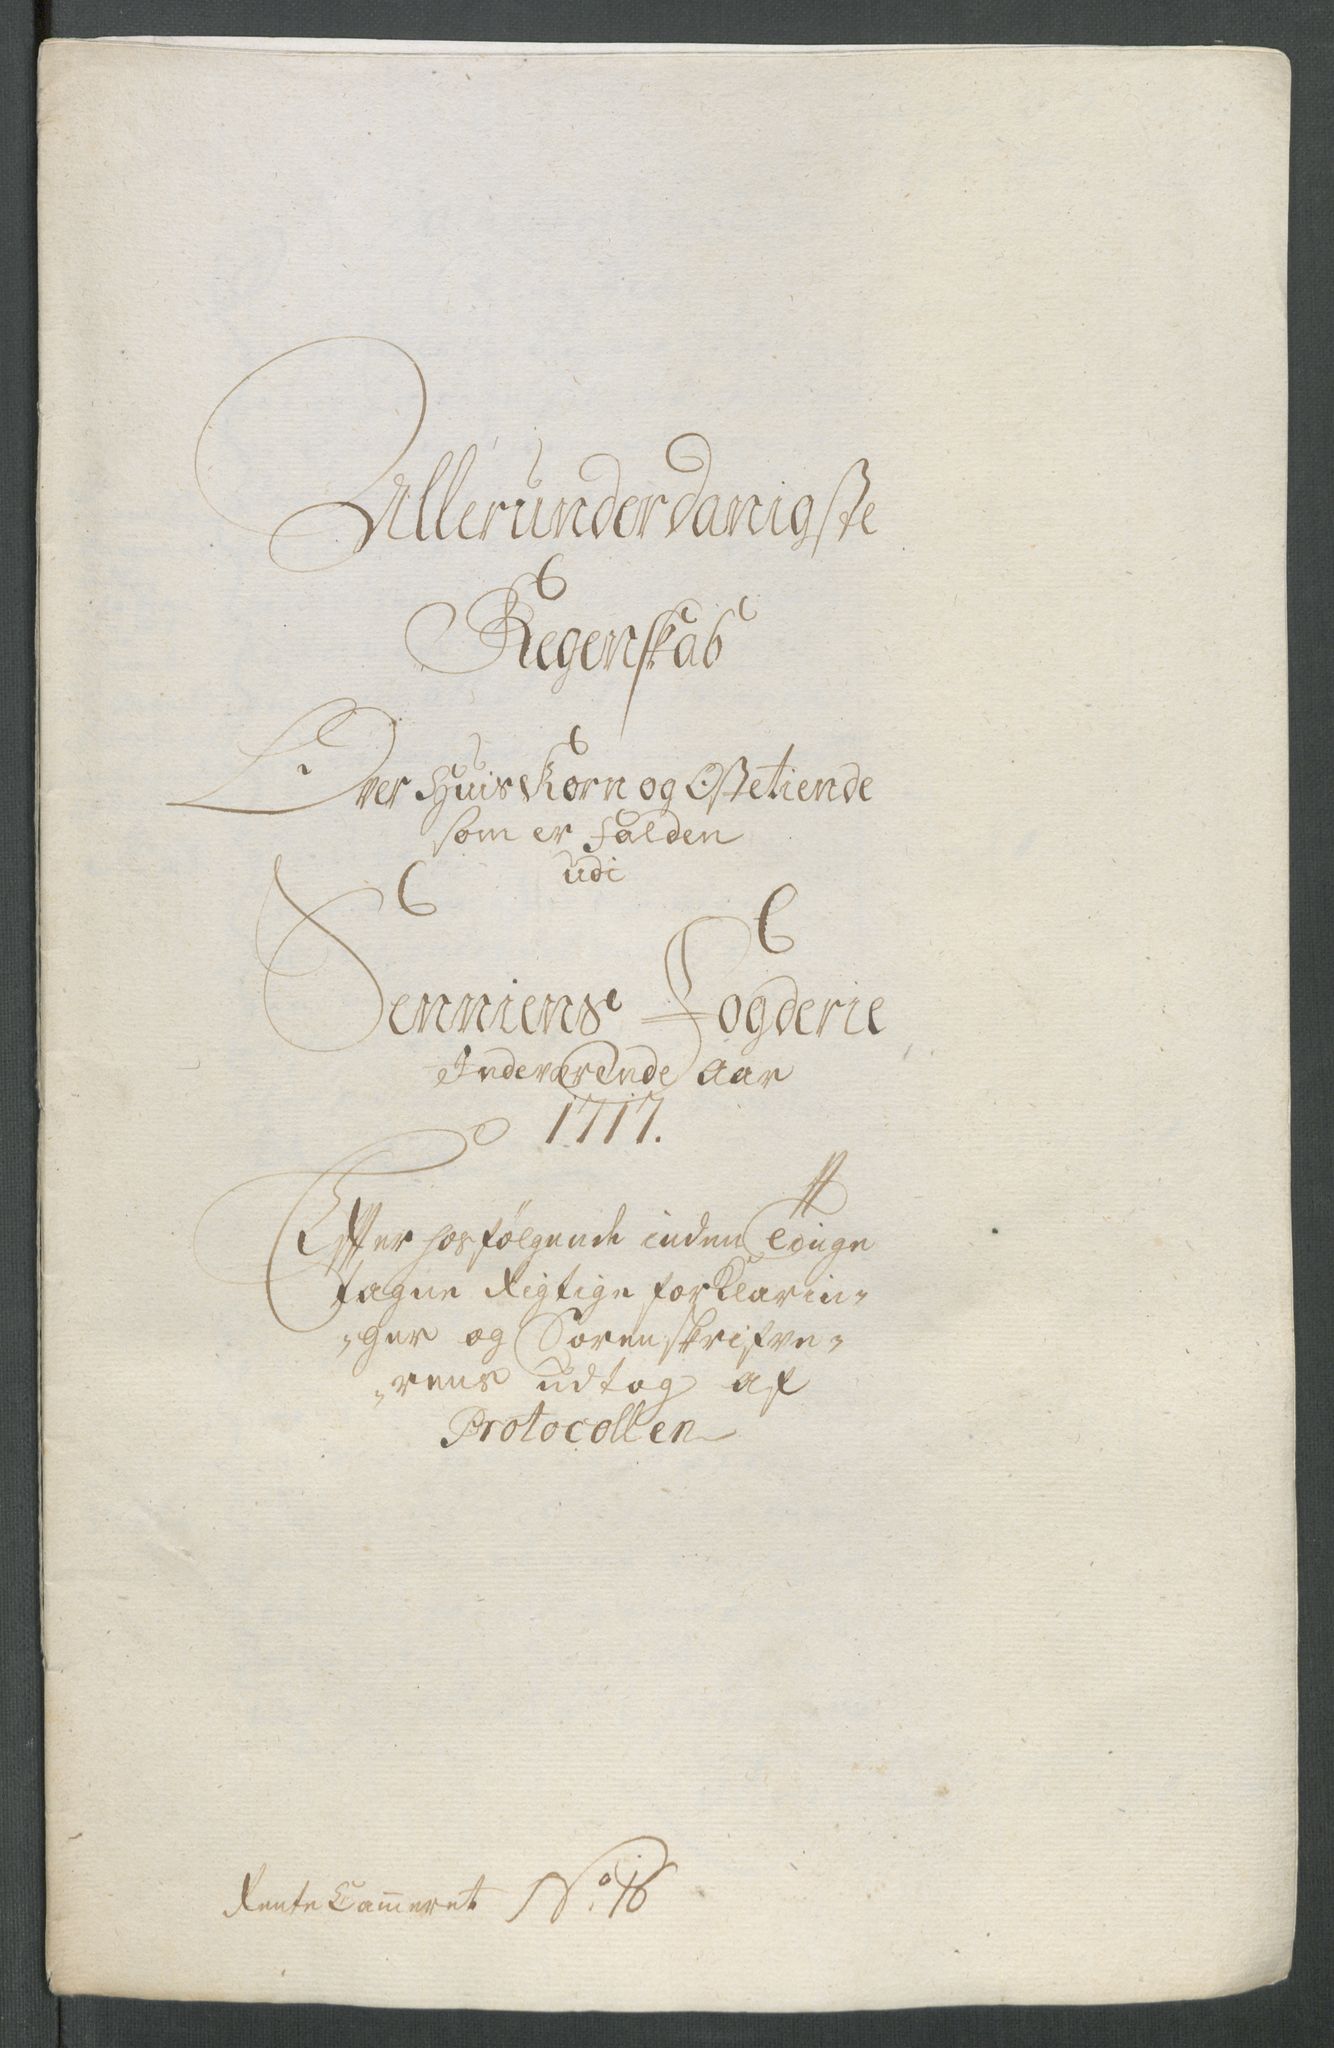 Allerunderdanigste
Regenskab
Over Huis Korn og Ostetiende
som er falden
udi
Senniens Fogderie
Indeværende Aar
1717.
Efter hosfølgende inden Tinge
tagne Rigtige forklarin-
-ger og Sorenskrifve-
-rens udtog af
Protocollen
Rente Cammeret No. 16